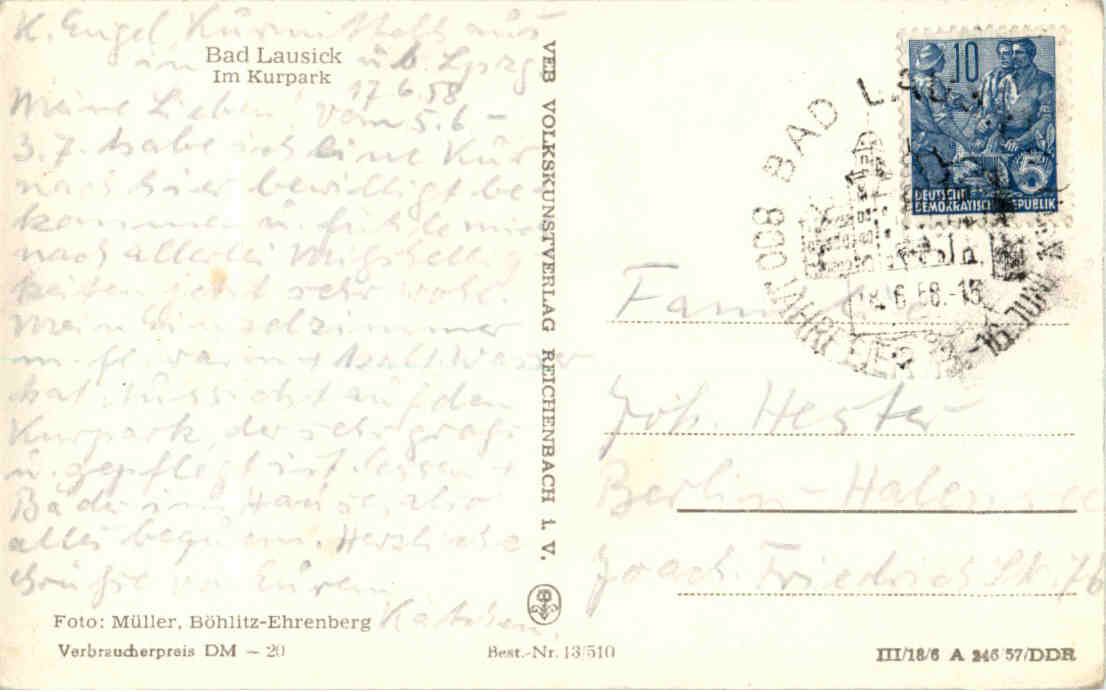 K. Engel, Kurmittelh aus
Bad Lausick
Im Kurpark
in üb. Lpzg
17.6.58
Meine Lieben! Vom 5.6 –
3.7. habe ich eine Kur
nach hier bewilligt be
kommen u. fühle mich
nach allerlei Mißhellig
keiten jetzt sehr wohl.
Mein Einzelzimmer
m. fl. warm + kalt. Wasser
hat Aussicht auf den
Kurpark, der sehr groß
u. gepflegt ist. Essen +
Bäder im Hause, also
alles bequem. Herzliche
Grüße von Eurem
Foto: Müller, Böhlitz-Ehrenberg
Verbraucherpreis DM – 20
VEB VOLKSKUNSTVERLAG REICHENBACH i. V.
Best.-Nr. 13/510
10
5
DEUTSCHE
DEMOKRATISCHE REPUBLIK
BAD LAU
800 JAHRFEIER
16. JUNI
6.58.-16
Familie
Joh. Hester
Berlin-Halensee
Joach. Friedrich Str. 76
III/18/6 A 246/57/DDR